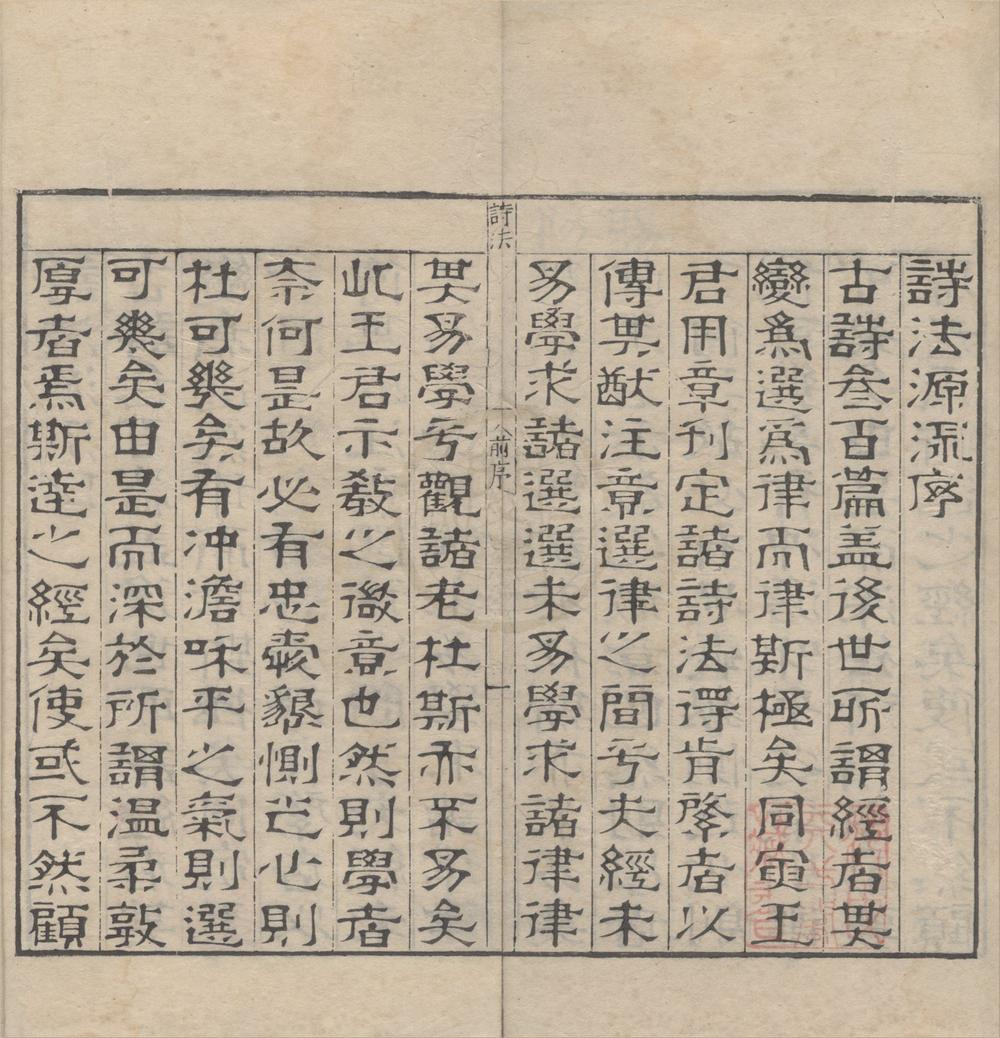 詩法源流序
古詩叁百篇盖後世所謂經者其
變爲選爲律而律斯極矣同寅王
君用章刊定諸詩法得肯綮者以
傳其猷注意選律之間乎夫經未
易學求諸選選未易學求諸律律
詩法
前序
一
其易學乎觀諸老杜斯亦不易矣
此王君示教之微意也然則學者
奈何是故必有忠愛懇惻之心則
杜可幾矣有冲澹和平之氣則選
可幾矣由是而深於所謂温柔敦
厚者焉斯達之經矣使或不然顧